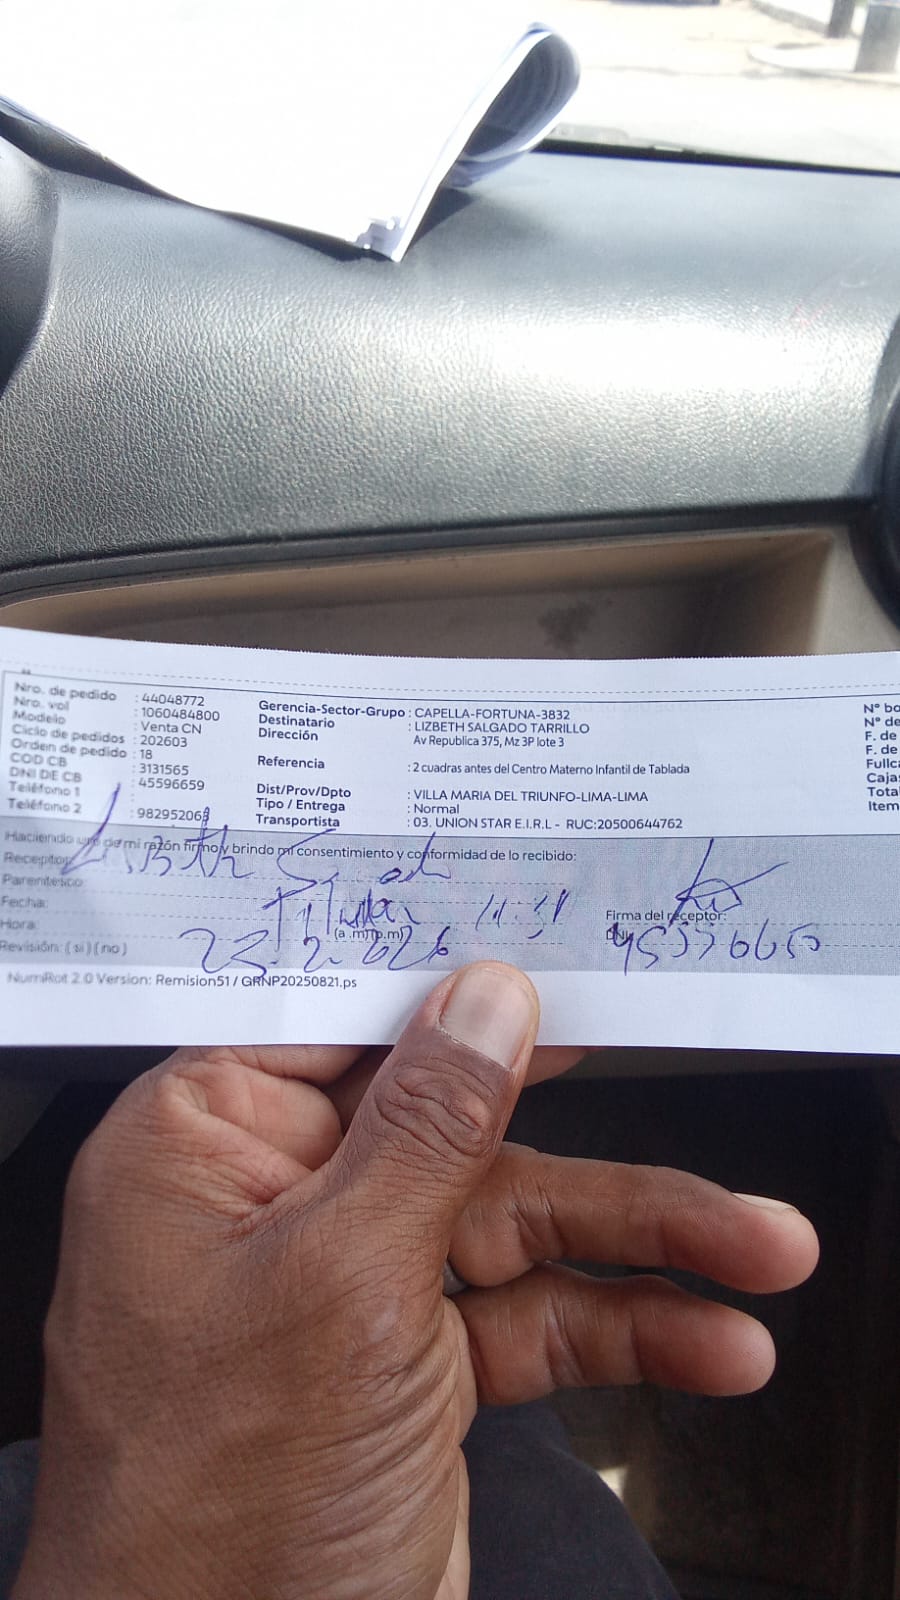 Nro. de pedido : 44048772
Nro. vol : 1060484800
Modelo : Venta CN
Ciclo de pedidos : 202603
Orden de pedido : 18
COD CB : 3131565
DNI DE CB : 45596659
Teléfono 1 :
Teléfono 2 : 982952068
Gerencia-Sector-Grupo : CAPELLA-FORTUNA-3832
Destinatario : LIZBETH SALGADO TARRILLO
Dirección Av Republica 375, Mz 3P lote 3
Referencia : 2 cuadras antes del Centro Materno Infantil de Tablada
Dist/Prov/Dpto : VILLA MARIA DEL TRIUNFO-LIMA-LIMA
Tipo / Entrega : Normal
Transportista : 03. UNION STAR E.I.R.L - RUC:20500644762
N° bo
N° de
F. de
F. de
Fullc
Cajas
Tota
Item
Haciendo uso de mi razón firmo y brindo mi consentimiento y conformidad de lo recibido:
Receptor:
Parentesco: Titular
Fecha:
Hora: (a.m)(p.m)
Revisión: ( si ) ( no )
Firma del receptor:
DNI:
NumRot 2.0 Version: Remision51 / GRNP20250821.ps